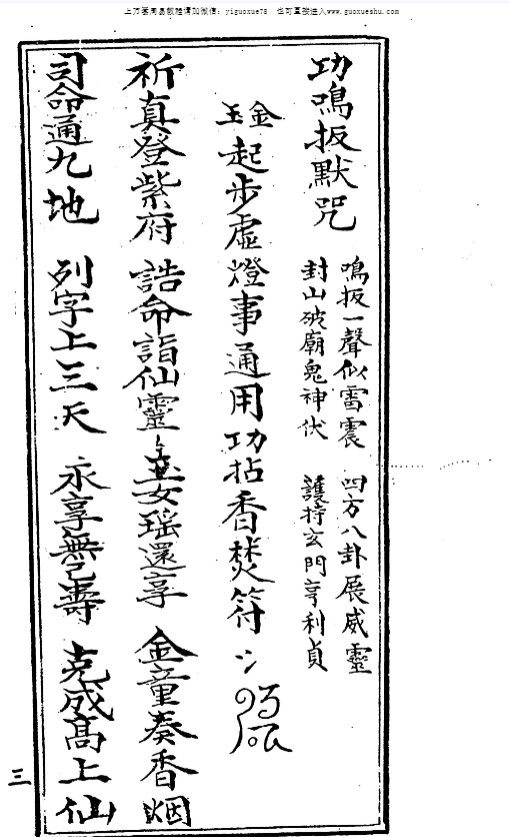 上万套周易教程请加微信：yiguoxue78  也可直接进入www.guoxueshu.com
功鳴扳默咒
鳴扳一聲似雷震 四方八卦展威靈
封山破廟鬼神伏 護持玄門亨利貞
金玉起步虛燈事通用功拈香焚符
祈真登紫府 誥命詣仙靈 玉女瑶還享 金童奏香烟
司命通九地 列字上三天 永享無已壽 克成髙上仙
三